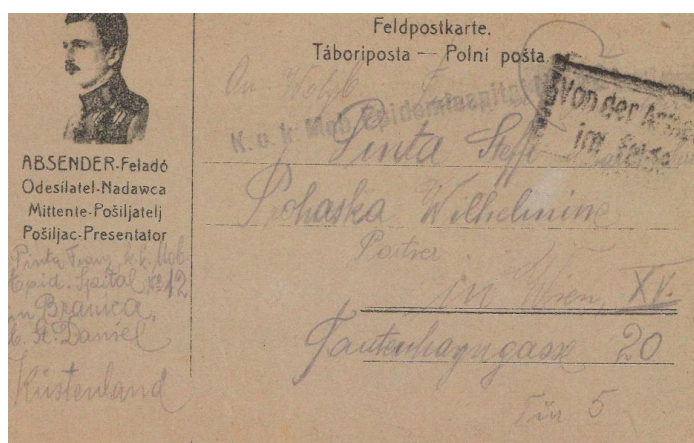 Feldpostkarte.
Táboriposta — Polni pošta.
An Wolgb.
K. u. k. Mob. Epidemiespital
Von der Armee
im Felde
Pinta Steffi
Prohaska Wilhelmine
Parterr
in Wien, XV.
Tautenhayngasse 20
Tür 5
ABSENDER-Feladó
Odesílatel-Nadawca
Mittente-Pošiljatelj
Pošiljac-Presentator
Pinta Franz k.k. Mob.
Epid. Spital No 12
in Branica,
b. St. Daniel
Küstenland